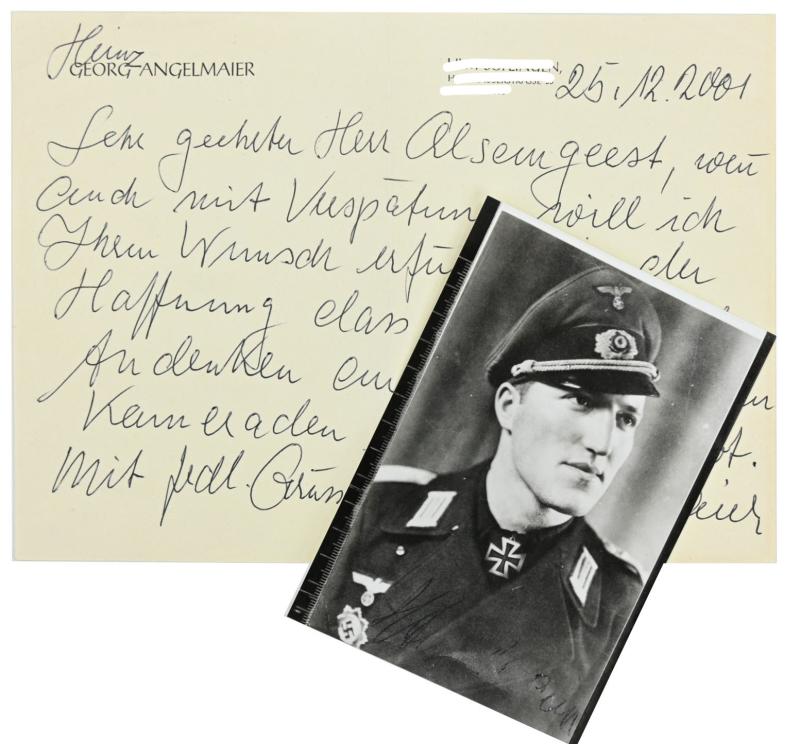 Heinz
GEORG ANGELMAIER
25.12.2001
Sehr geehrter Herr Alsemgeest, wen
auch mit Verspätun will ich
Ihren Wunsch erfü der
Hoffnung dass
Andenken
Kameraden
Mit frdl. Grüss